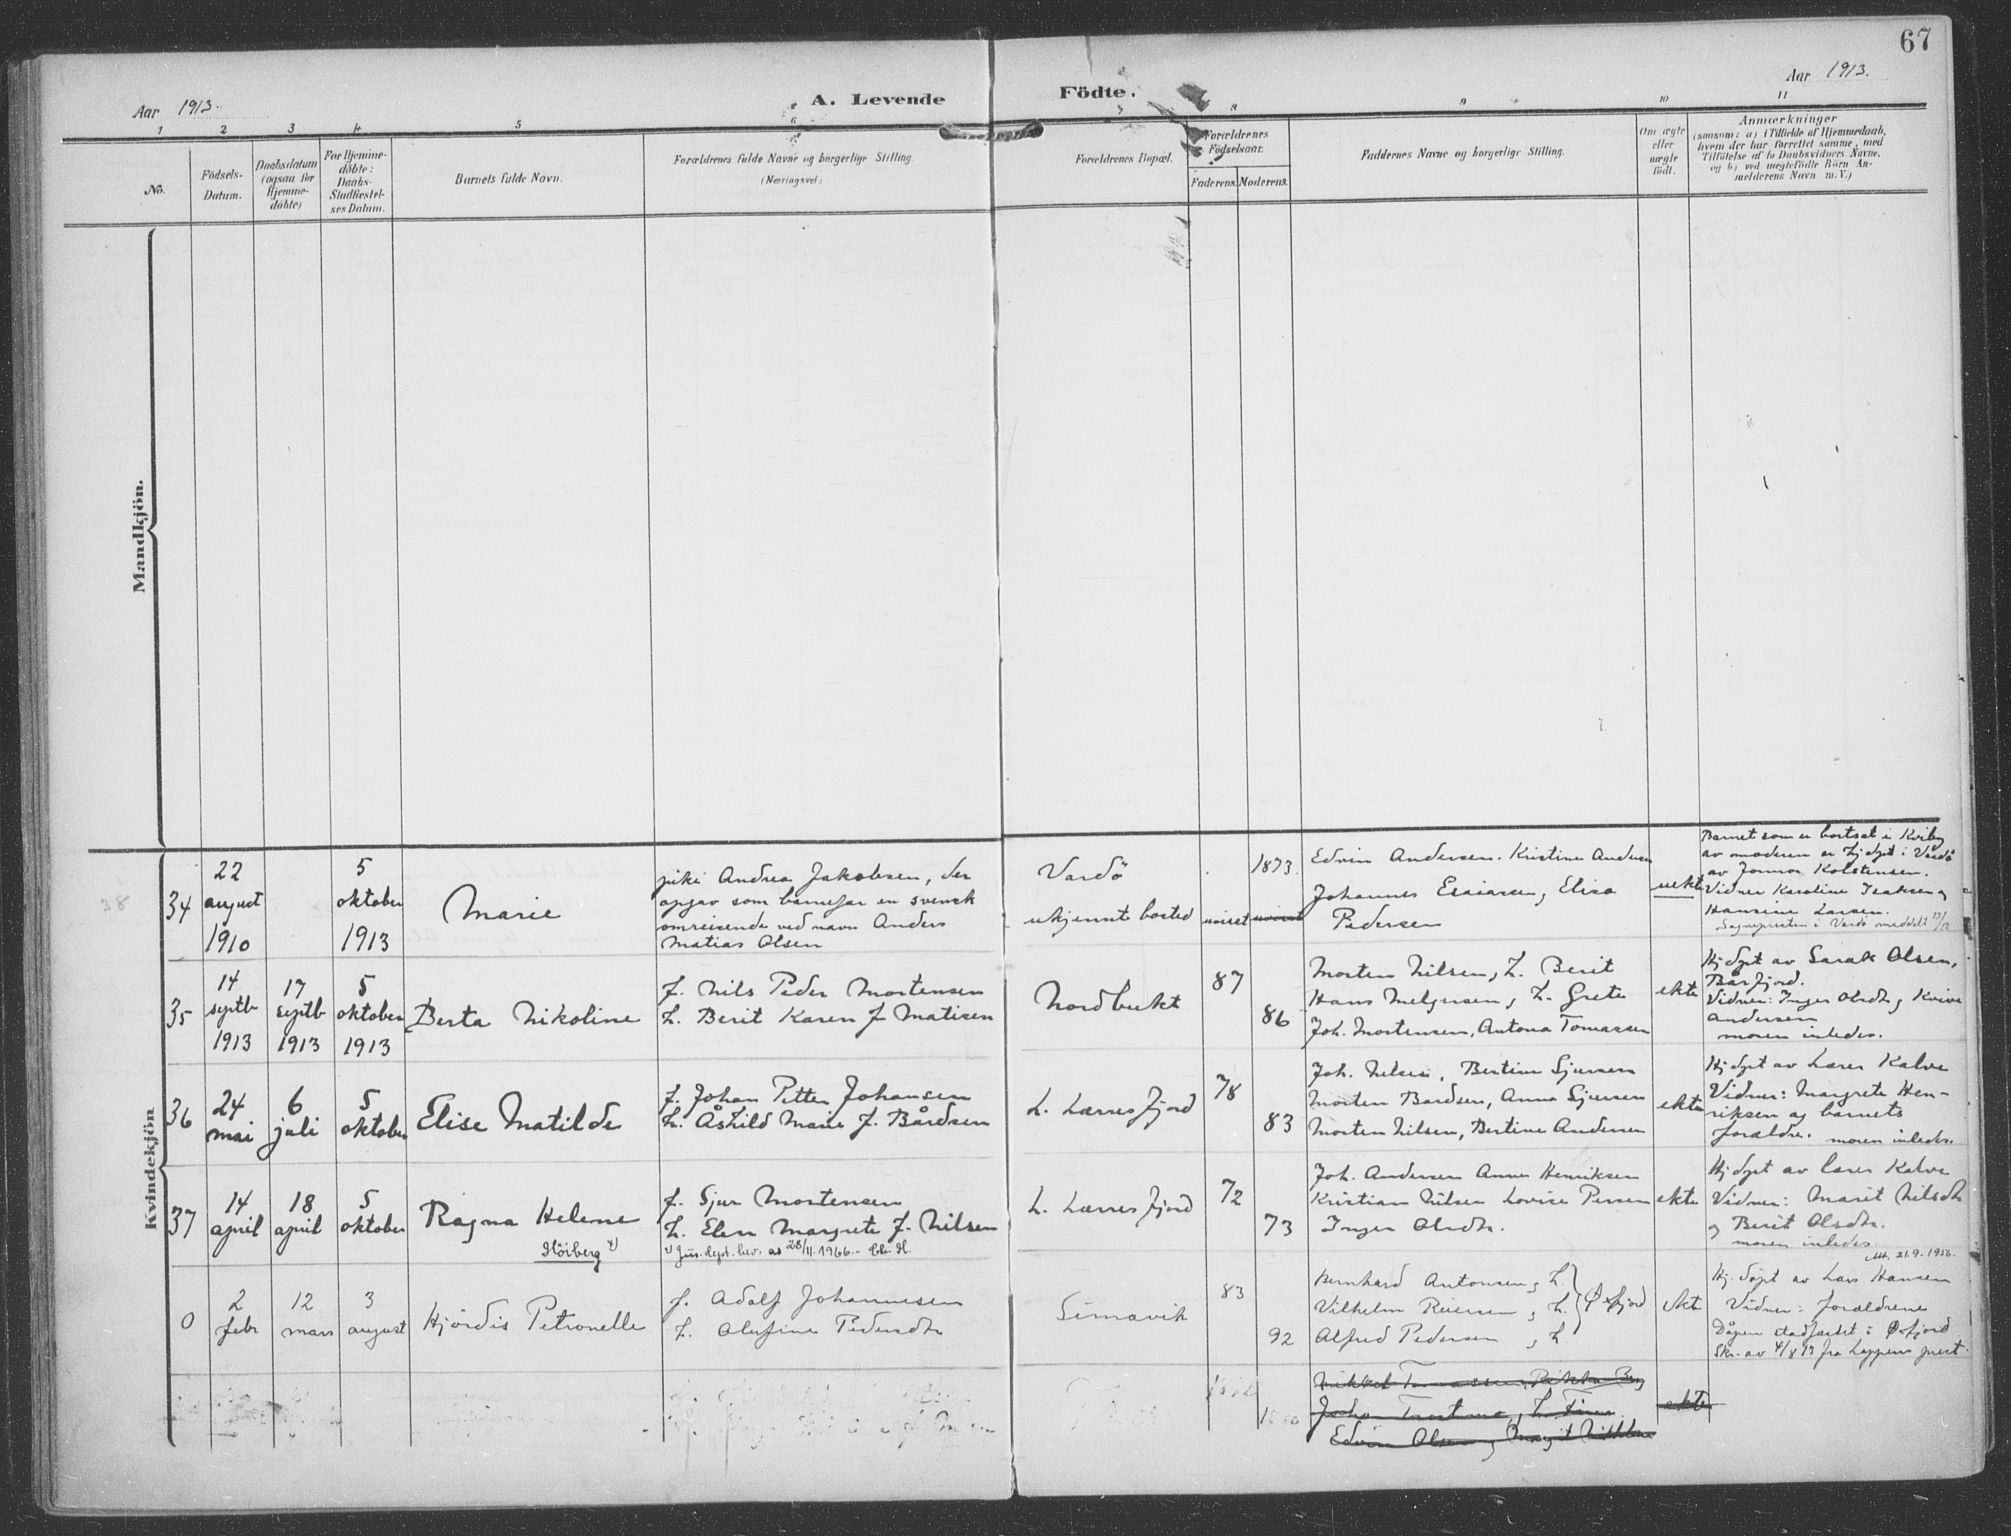 67
Aar 1913.
A. Levende Födte.
Aar 1913.
1 2 3 4 5 6 7 8 9 10 11
No.
Födsels-
Datum.
Daabsdatum
(ogsaa for
Hjemme-
döbte)
For Hjemme-
döbte:
Daabs-
Stadfæstel-
ses Datum.
Barnets fulde Navn.
Forældrenes fulde Navne og borgerlige Stilling.
(Næringsvei)
Forældrenes Bopæl.
Forældrenes
Födselsaar.
Faderens. Moderens.
Faddernes Navne og borgerlige Stilling.
Om ægte
eller
uægte
födt.
Anmærkninger
(saasom: a) i Tilfælde af Hjemmedaab,
hvem der har forrettet samme, med
Tilföielse af to Daabsvidners Navne,
og b) ved uægtefödte Börn An-
melderens Navn m. V.)
Mandkjön.
Kvindekjön
38
34
22
august
1910
5
oktober
1913
Marie
pike Andrea Jakobsen, der
opgav som barnefar en svensk
omreisende ved navn Anders
Matias Olsen
Vardö
ukjennt bosted
uvisst
1873.
Edvin Andersen. Kristine Andersen
Johannes Esaiasen, Elisa
Pedersen
uekte
Barnet som er bortsat i Kviby
av moderen er hjdøpt i Vardö
av Jonna Kolstensen.
Vidner Karoline Isaksen og
Hansine Larsen.
Sognepresten i Vardö meddelt 13/12
35
14
septb
1913
17
septb
1913
5
oktober
1913
Berta Nikoline
f. Nils Peder Mortensen
h. Berit Karen f. Matisen
Nordbukt
87
86
Morten Nilsen, h. Berit
Hans Melgersen, h. Grete
Joh. Mortensen, Antona Tomassen
ekte
Hjdøpt av Sarak Olsen,
Bårfjord.
Vidner: Inger Olsdtr og Kvive
Andersen
moren inledes.
36
24
mai
6
juli
5
oktober
Elise Matilde
f. Johan Petter Johansen
h. Åshild Marie f. Bårdsen
L. Lerresfjord
78
83
Joh. Nilsen, Bertine Sjursen
Morten Bardsen, Anna Sjursen
Morten Nilsen, Bertine Andersen
ekte
Hjdøpt av Lars Kalve
Vidner: Margrete Hen-
riksen og barnets
forældre. moren inledes.
37
14
april
18
april
5
oktober
Ragna Helene
Höiberg 1)
f. Sjur Mortensen
h. Elen Margrete f. Nilsen
1) Jus. dept. bev. av 28/11.1966.
L. Lerresfjord
72
73
Joh. Andersen Anna Henriksen
Kristian Nilsen Lovise Persen
Inger Olsdtr.
ekte
Hjdøpt av Lars Kalve
Vidner: Marit Nilsdtr
og Berit Olsdtr.
moren inledes.
Att. 21.9.1950.
0
2
febr
12
mars
3
august
Hjördis Petronelle
f. Adolf Johannesen
h. Olufine Pedersdtr
Simavik
83
92
Bernhard Antonsen, h.
Vilhelm Reiersen, h. } Øxfjord
Alfred Pedersen, h
ekte
Hj. døpt av Lars Hansen
Vidner: forældrene
Dåpen stadfæstet i Øxfjord
Skr. av 4/8 13 fra Loppens prest.
ekte